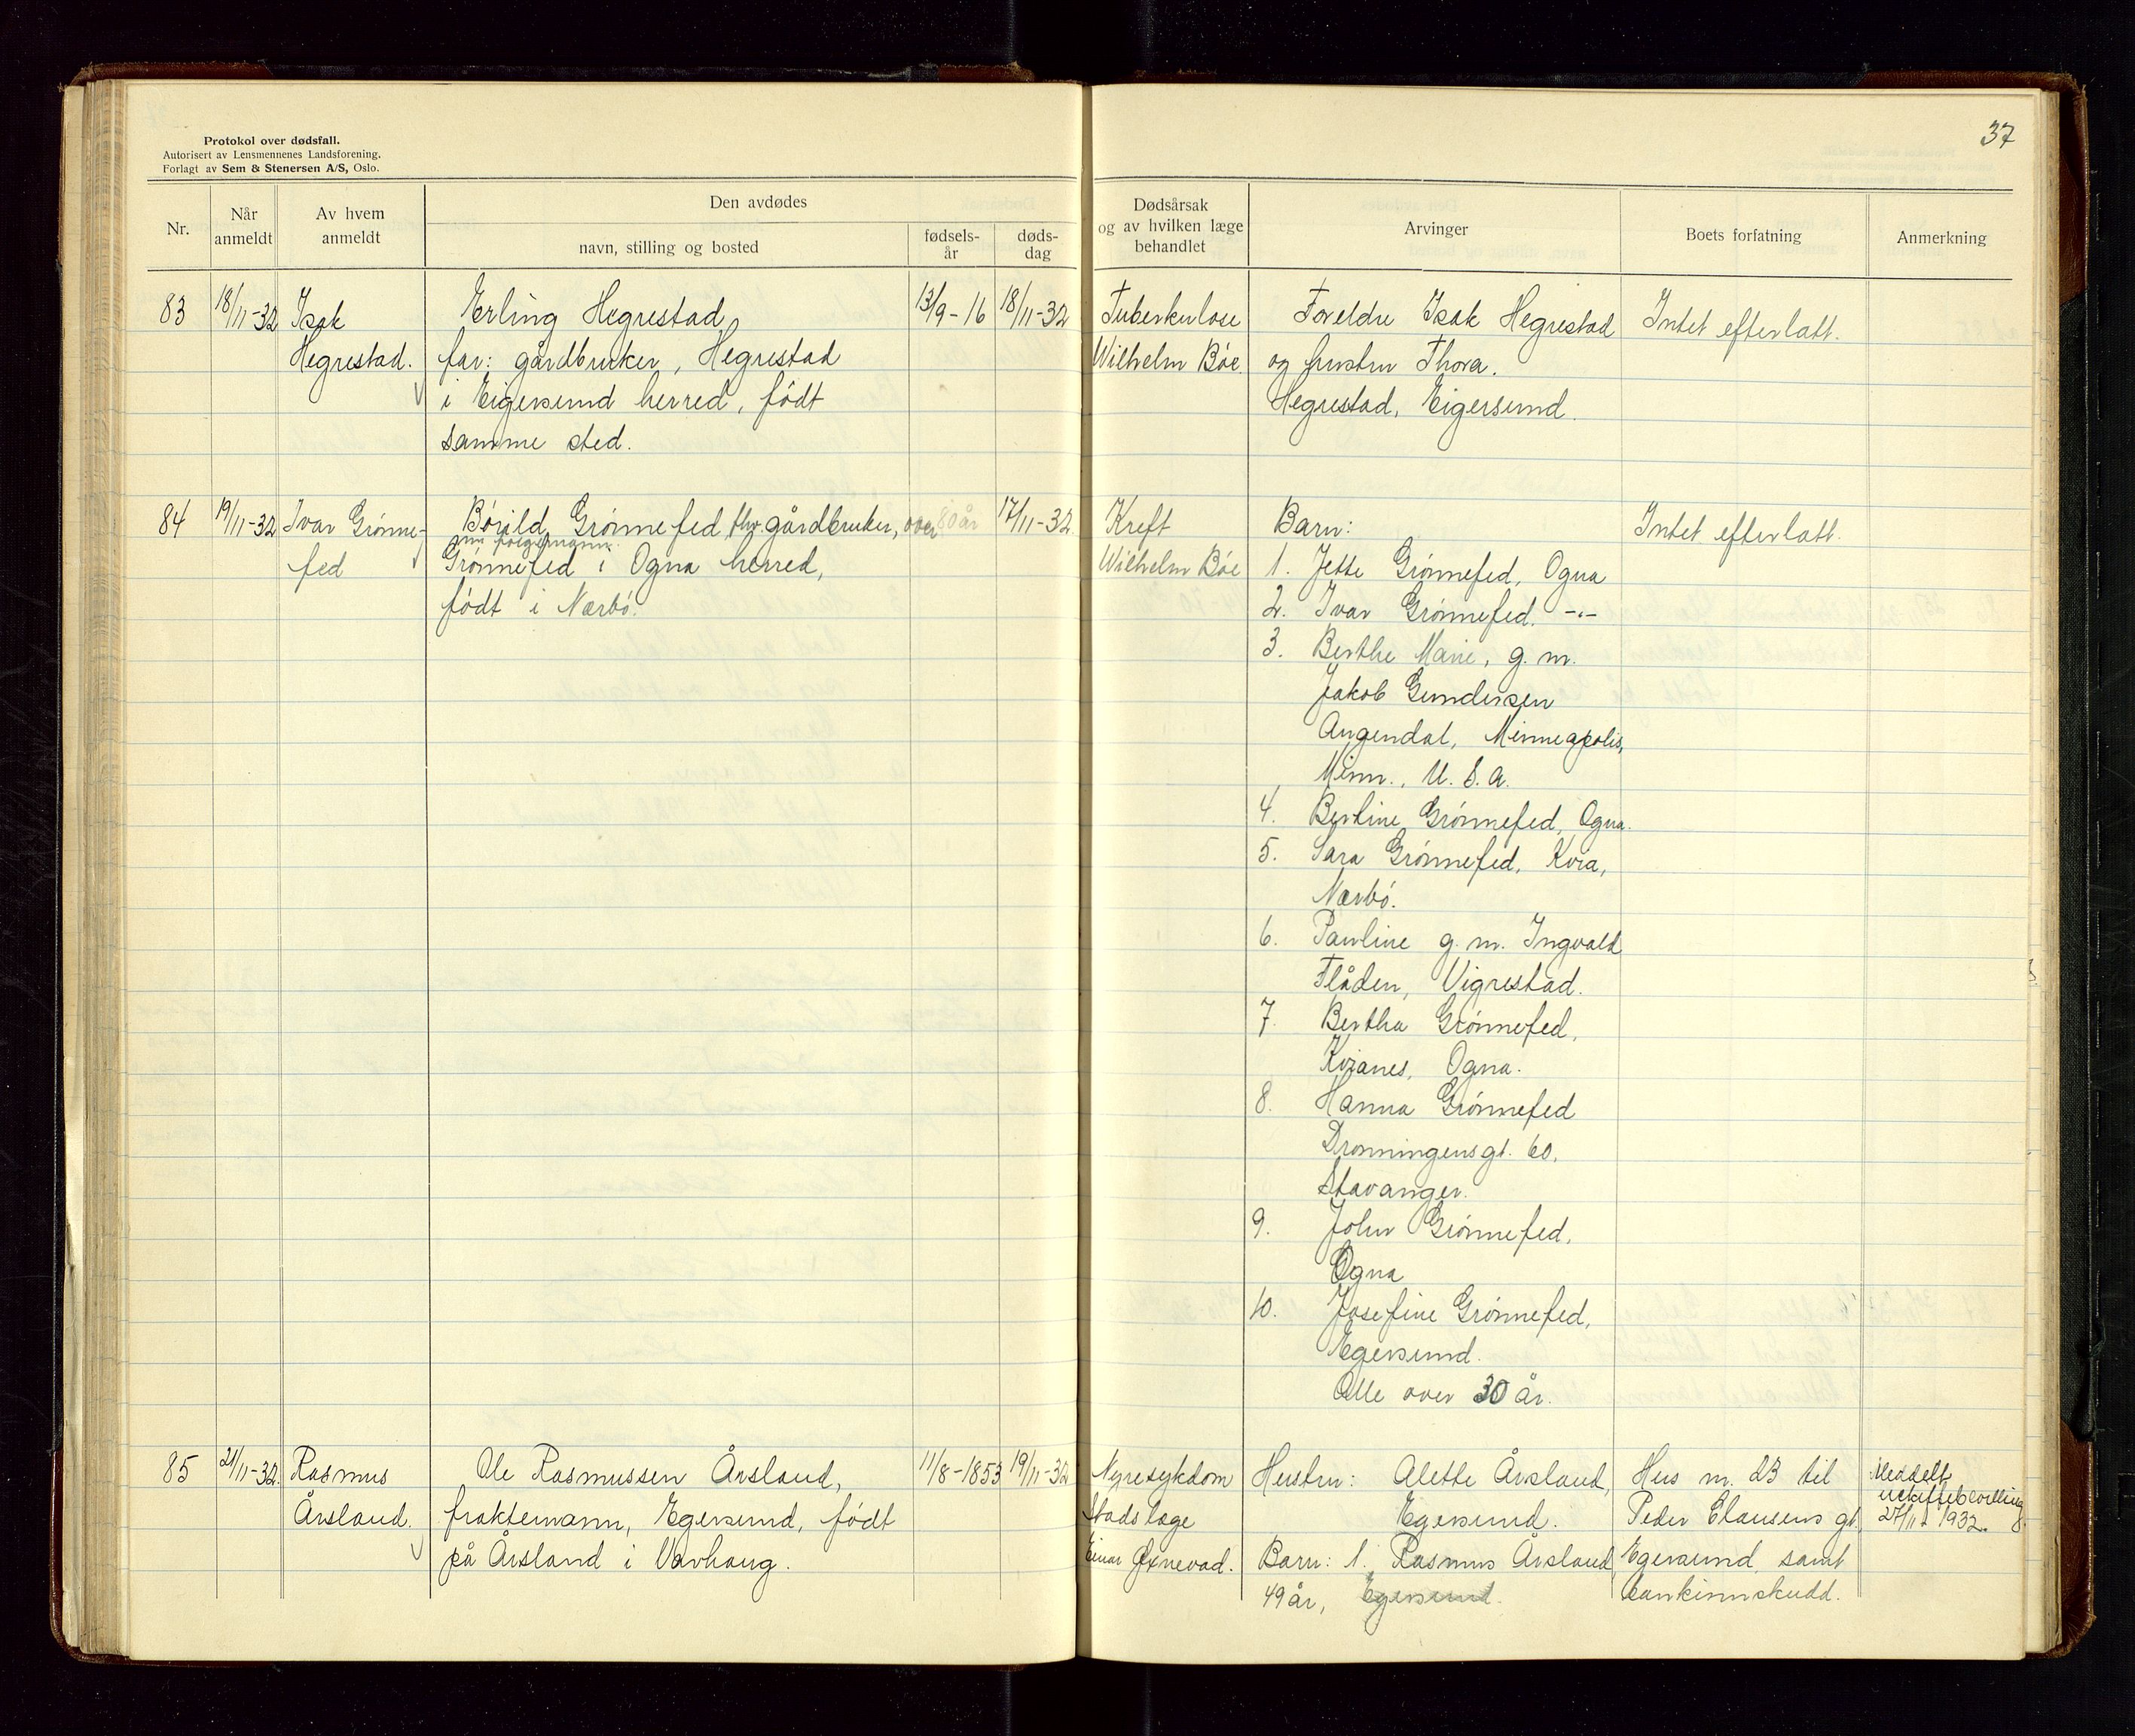 37
Protokol over dødsfall.
Autorisert av Lensmennenes Landsforening.
Forlagt av Sem & Stenersen A/S, Oslo.
Nr.
Når anmeldt
Av hvem anmeldt
Den avdødes
navn, stilling og bosted
fødsels-
år
døds-
dag
Dødsårsak
og av hvilken læge
behandlet
Arvinger
Boets forfatning
Anmerkning
83
18/11-32
Isak
Hegrestad.
Erling Hegrestad,
far: gårdbruker, Hegrestad
i Eigersund herred, født
samme sted.
13/9-16
18/11-32
Tuberkulose
Wilhelm Bóe.
Foreldre Isak Hegrestad
og hustru Thora.
Hegrestad, Eigersund.
Intet efterlatt.
84
19/11-32
Ivar Grónne-
fed
Bórild Grónnefed, fhv. gårdbruker,
Grónnefed i Ogna herred,
født i Nærbó.
over 80 år
17/11-32
Kreft
Wilhelm Bóe
Barn:
1. Jette Grónnefed, Ogna
2. Ivar Grónnefed. -"-
3. Berthe Marie, g. m.
Jakob Gundersen
Angendal, Minneapolis,
Minn., U. S. A.
4. Bertine Grónnefed, Ogna.
5. Sara Grónnefed, Kvia,
Nærbó.
6. Pauline g. m. Ingvald
Flåden, Vigrestad.
7. Bertha Grónnefed,
Kvianes, Ogna.
8. Hanna Grónnefed
Dronningensgt. 60,
Stavanger.
9. John Grónnefed,
Ogna
10. Josefine Grónnefed,
Egersund.
Alle over 30 år.
Intet efterlatt.
85
21/11-32.
Rasmus
Årsland.
Ole Rasmussen Årsland,
fraktemann, Egersund, født
på Årsland i Varhaug.
11/8-1853
19/11-32
Nyresykdom
Stadslæge
Einar Øxnevad.
Hustru: Alette Årsland,
Egersund.
Barn: 1. Rasmus Årsland,
49 år, Egersund.
Hus nr. 23 til
Peder Clausens gt.
Egersund, samt
bankinnskudd.
Meddelt
uskiftebevilling
27/11 1932.